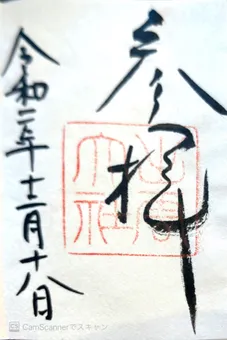 参拝
出雲大社
令和二年十二月十八日
CamScannerでスキャン